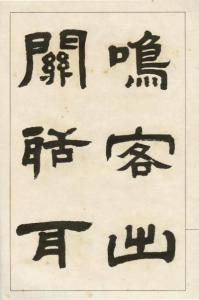 鳴客出
關聒耳